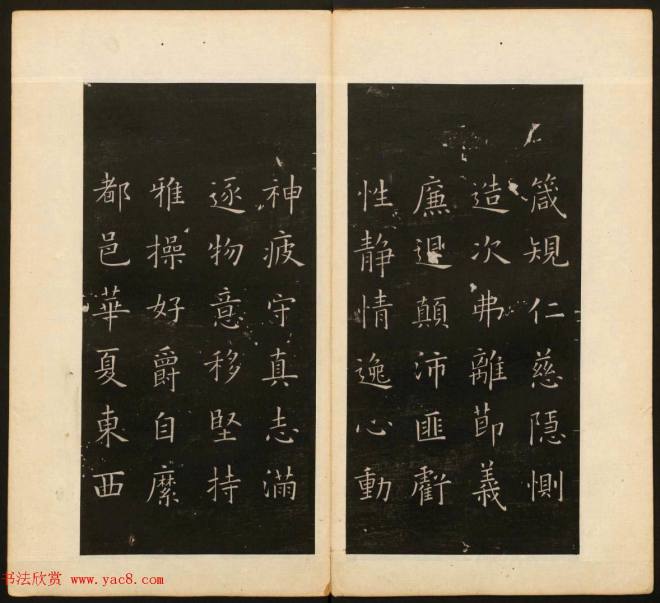 箴規仁慈隱惻
造次弗離節義
廉退顛沛匪虧
性静情逸心動
神疲守真志滿
逐物意移堅持
雅操好爵自縻
都邑華夏東西
书法欣赏 www.yac8.com